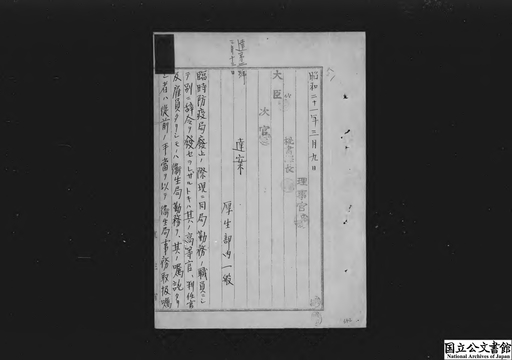 昭和二十一年三月九日
理事官
大臣
次官
達案
厚生部内一般
臨時防疫局廃止ノ際現ニ同局勤務ノ職員ニシ
テ別ニ辞令ヲ発セラレザルトキハ其ノ高等官、判任官
及雇員タリシモノハ衛生局勤務ヲ、其ノ嘱託タリ
シ者ハ従前ノ手当ヲ以テ衛生局事務取扱嘱
国立公文書館
National Archives of Japan